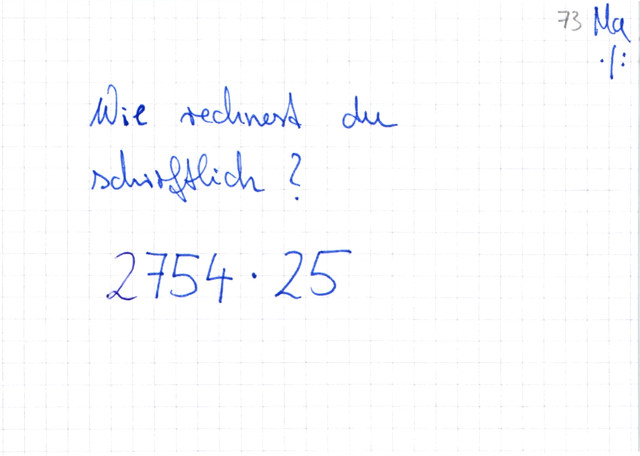 73 Ma
·/:
Wie rechnest du
schriftlich?
2754 · 25